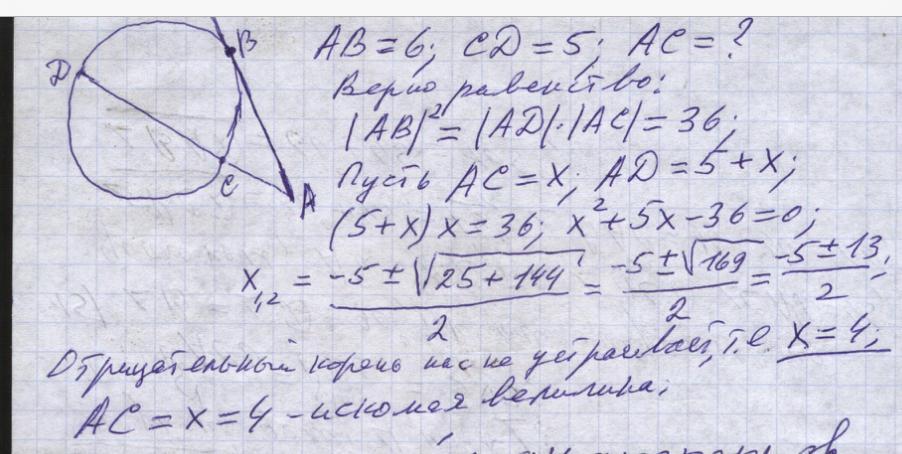 B
D
C
A
AB = 6; CD = 5; AC = ?
Верно равенство:
|AB|² = |AD|·|AC| = 36;
Пусть AC = x; AD = 5 + x;
(5+x) x = 36; x² + 5x - 36 = 0;
x₁,₂ = (-5 ± √(25 + 144))/2 = (-5 ± √169)/2 = (-5 ± 13)/2;
Отрицательный корень нас не устраивает, т.е. x = 4;
AC = x = 4 - искомая величина.